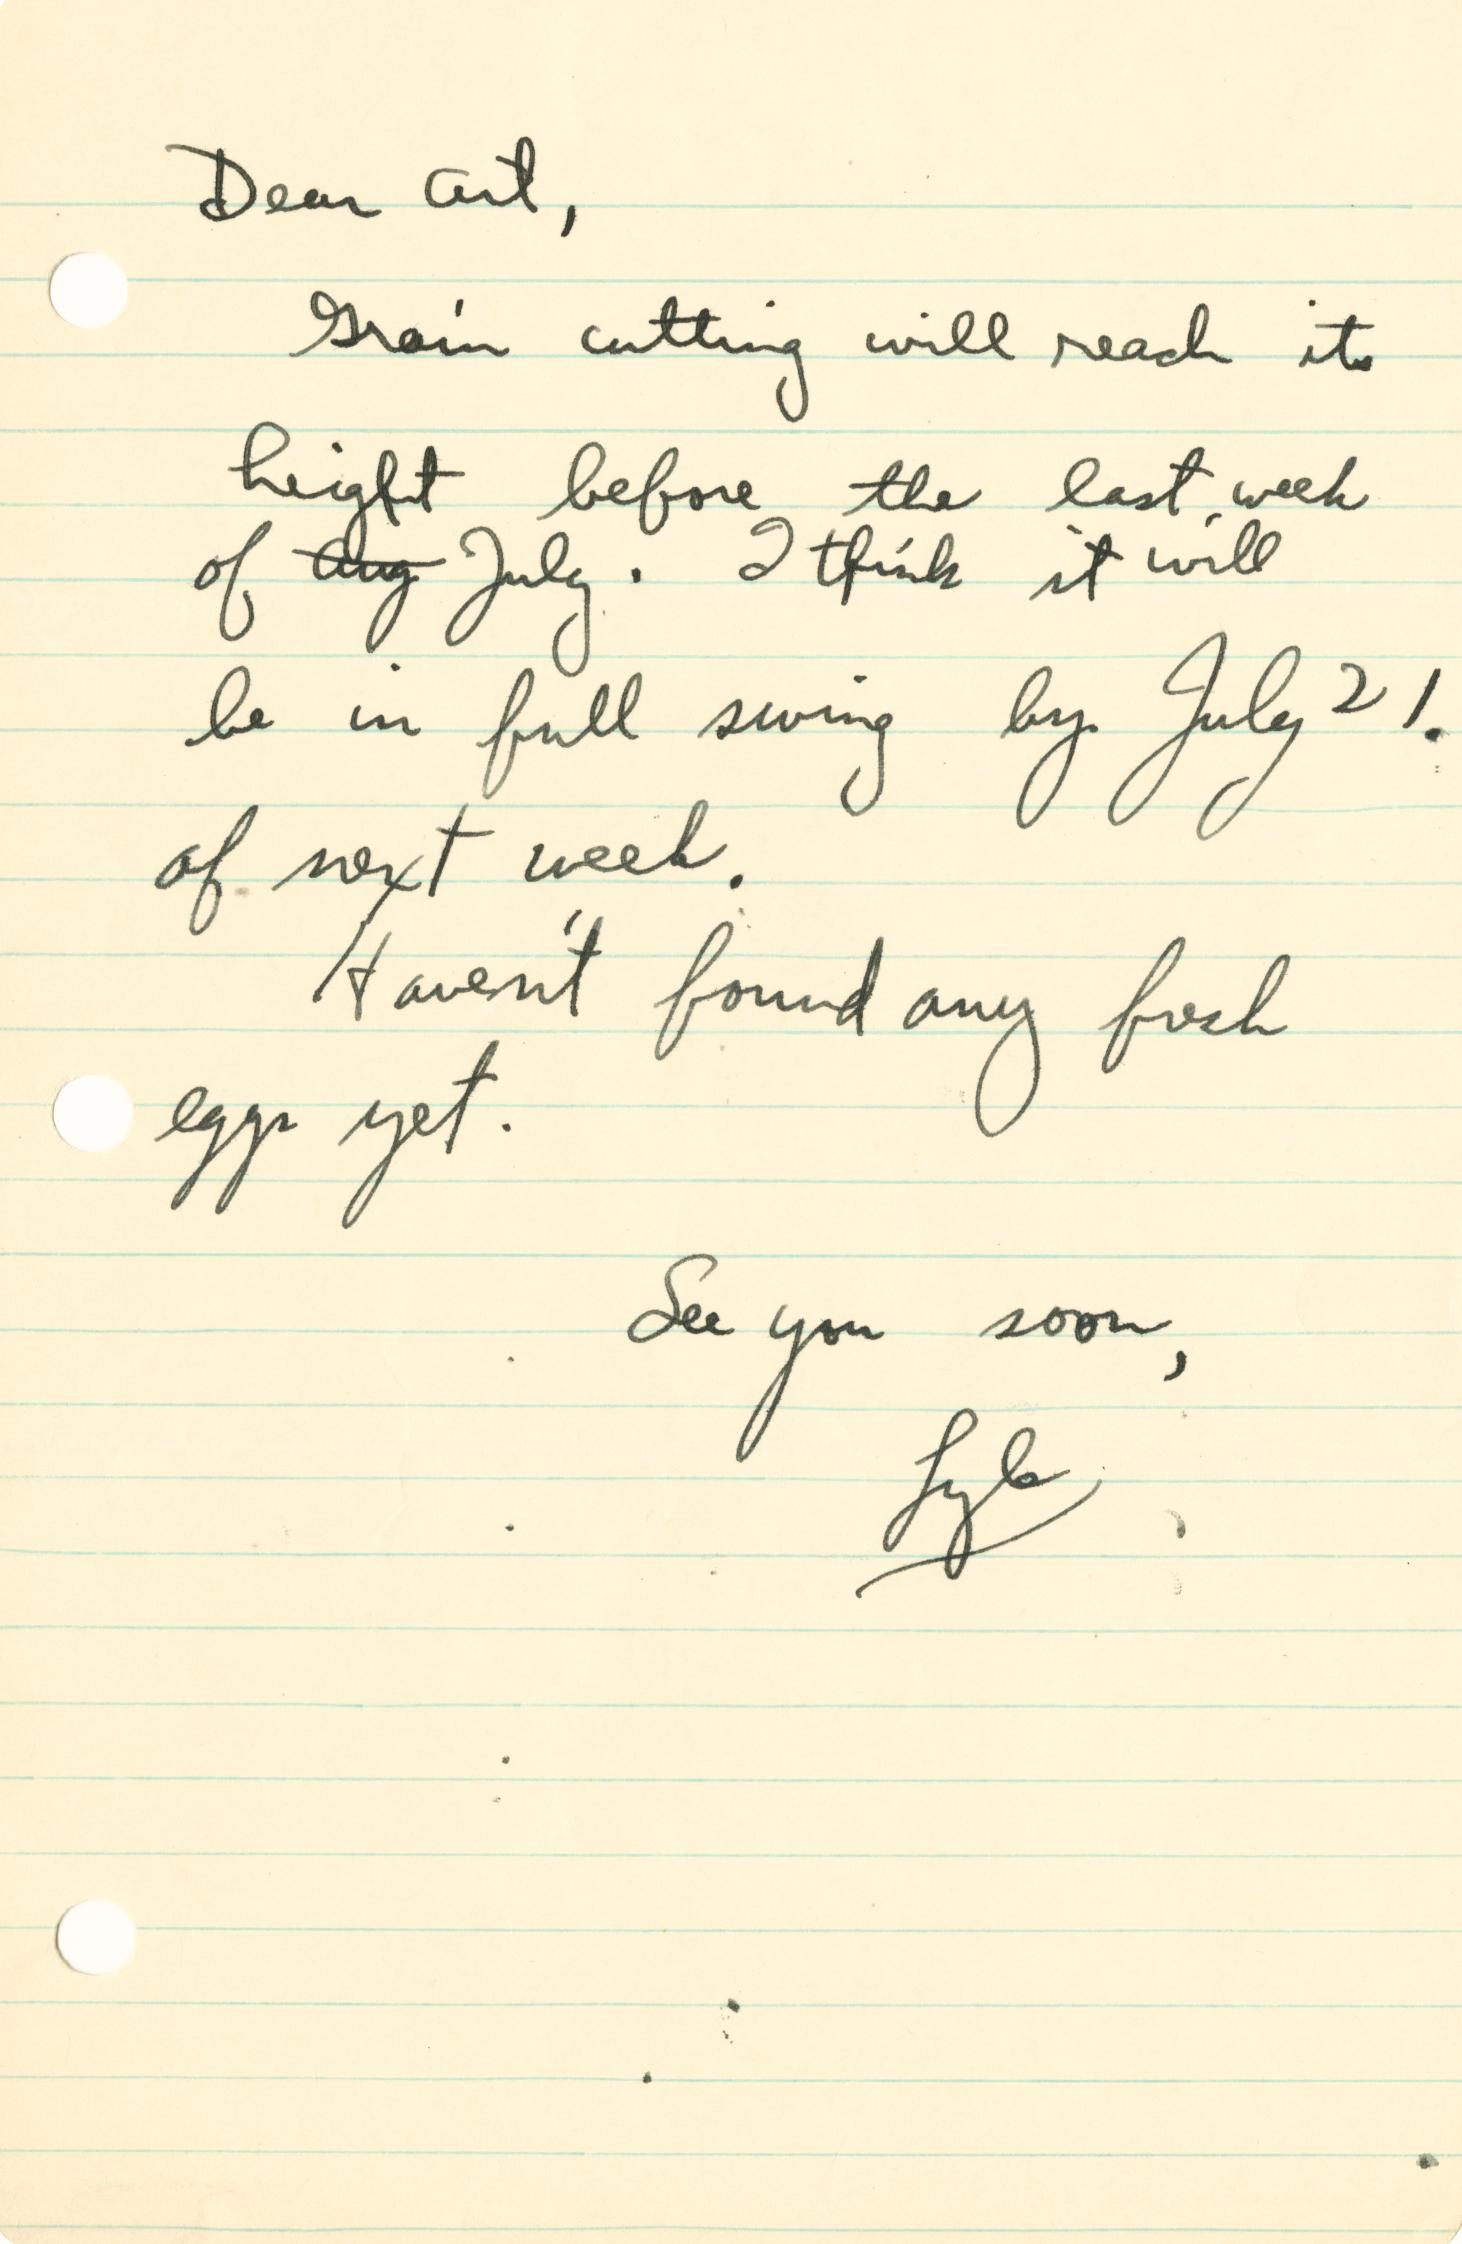 Dear Art,
Grain cutting will reach its
height before the last week
of Aug July. I think it will
be in full swing by July 21.
of next week.
Haven't found any fresh
eggs yet.
See you soon,
Lyle